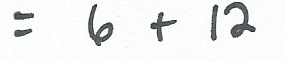 = 6 + 12